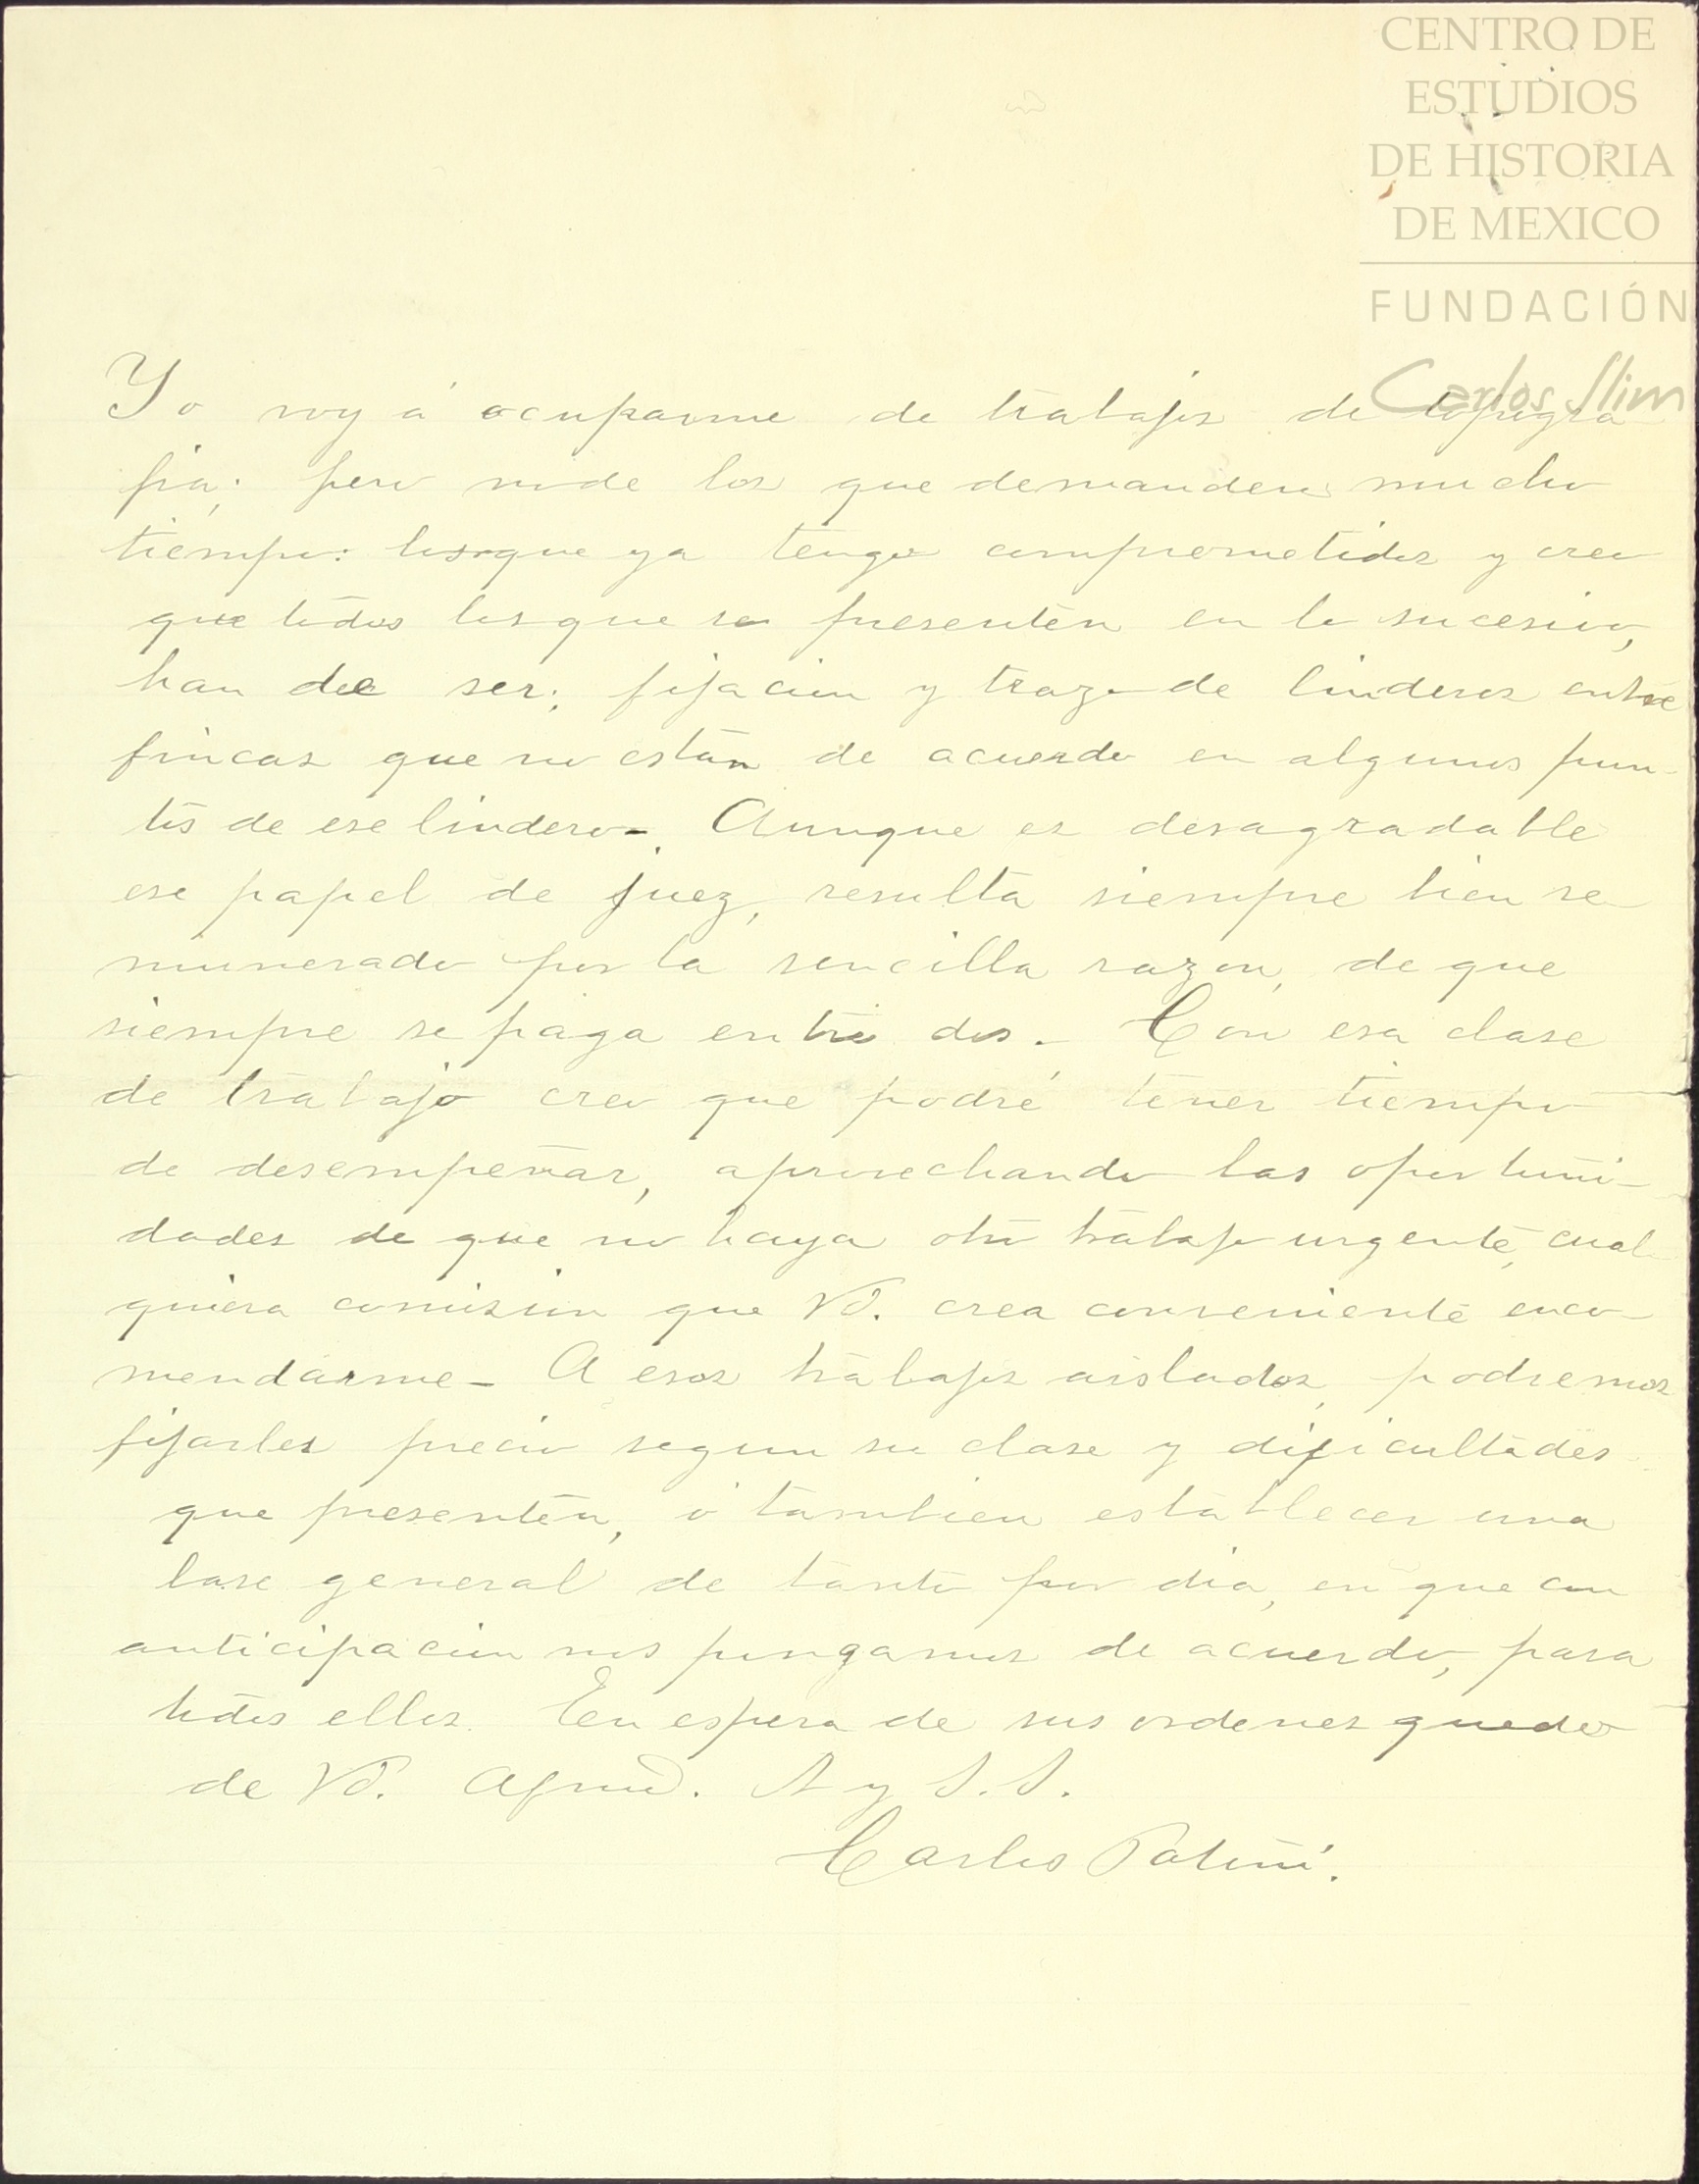 CENTRO DE
ESTUDIOS
DE HISTORIA
DE MEXICO
FUNDACIÓN
Carlos Slim
Yo voy á ocuparme de trabajos de topogra
fia; pero no de los que demanden mucho
tiempo: los que ya tengo comprometidos y creo
que todos los que se presenten en lo sucesivo,
han de ser; fijacion y trazo de linderos entre
fincas que no están de acuerdo en algunos pun-
tos de ese lindero-. Aunque es desagradable
ese papel de juez, resulta siempre bien re
munerado por la sencilla razon, de que
siempre se paga entre dos.- Con esa clase
de trabajo creo que podré tener tiempo
de desempeñar, aprovechando las oportuni-
dades de que no haya otro trabajo urgente, cual-
quiera comision que Vd. crea conveniente enco-
mendarme- A esos trabajos aislados, podremos
fijarles precio segun su clase y dificultades
que presenten, ó tambien establecer una
base general de tanto por dia, en que con
anticipacion nos pongamos de acuerdo, para
todos ellos. En espera de sus ordenes quedo
de Vd. Afmo. A y S.S.
Carlos Patiño.